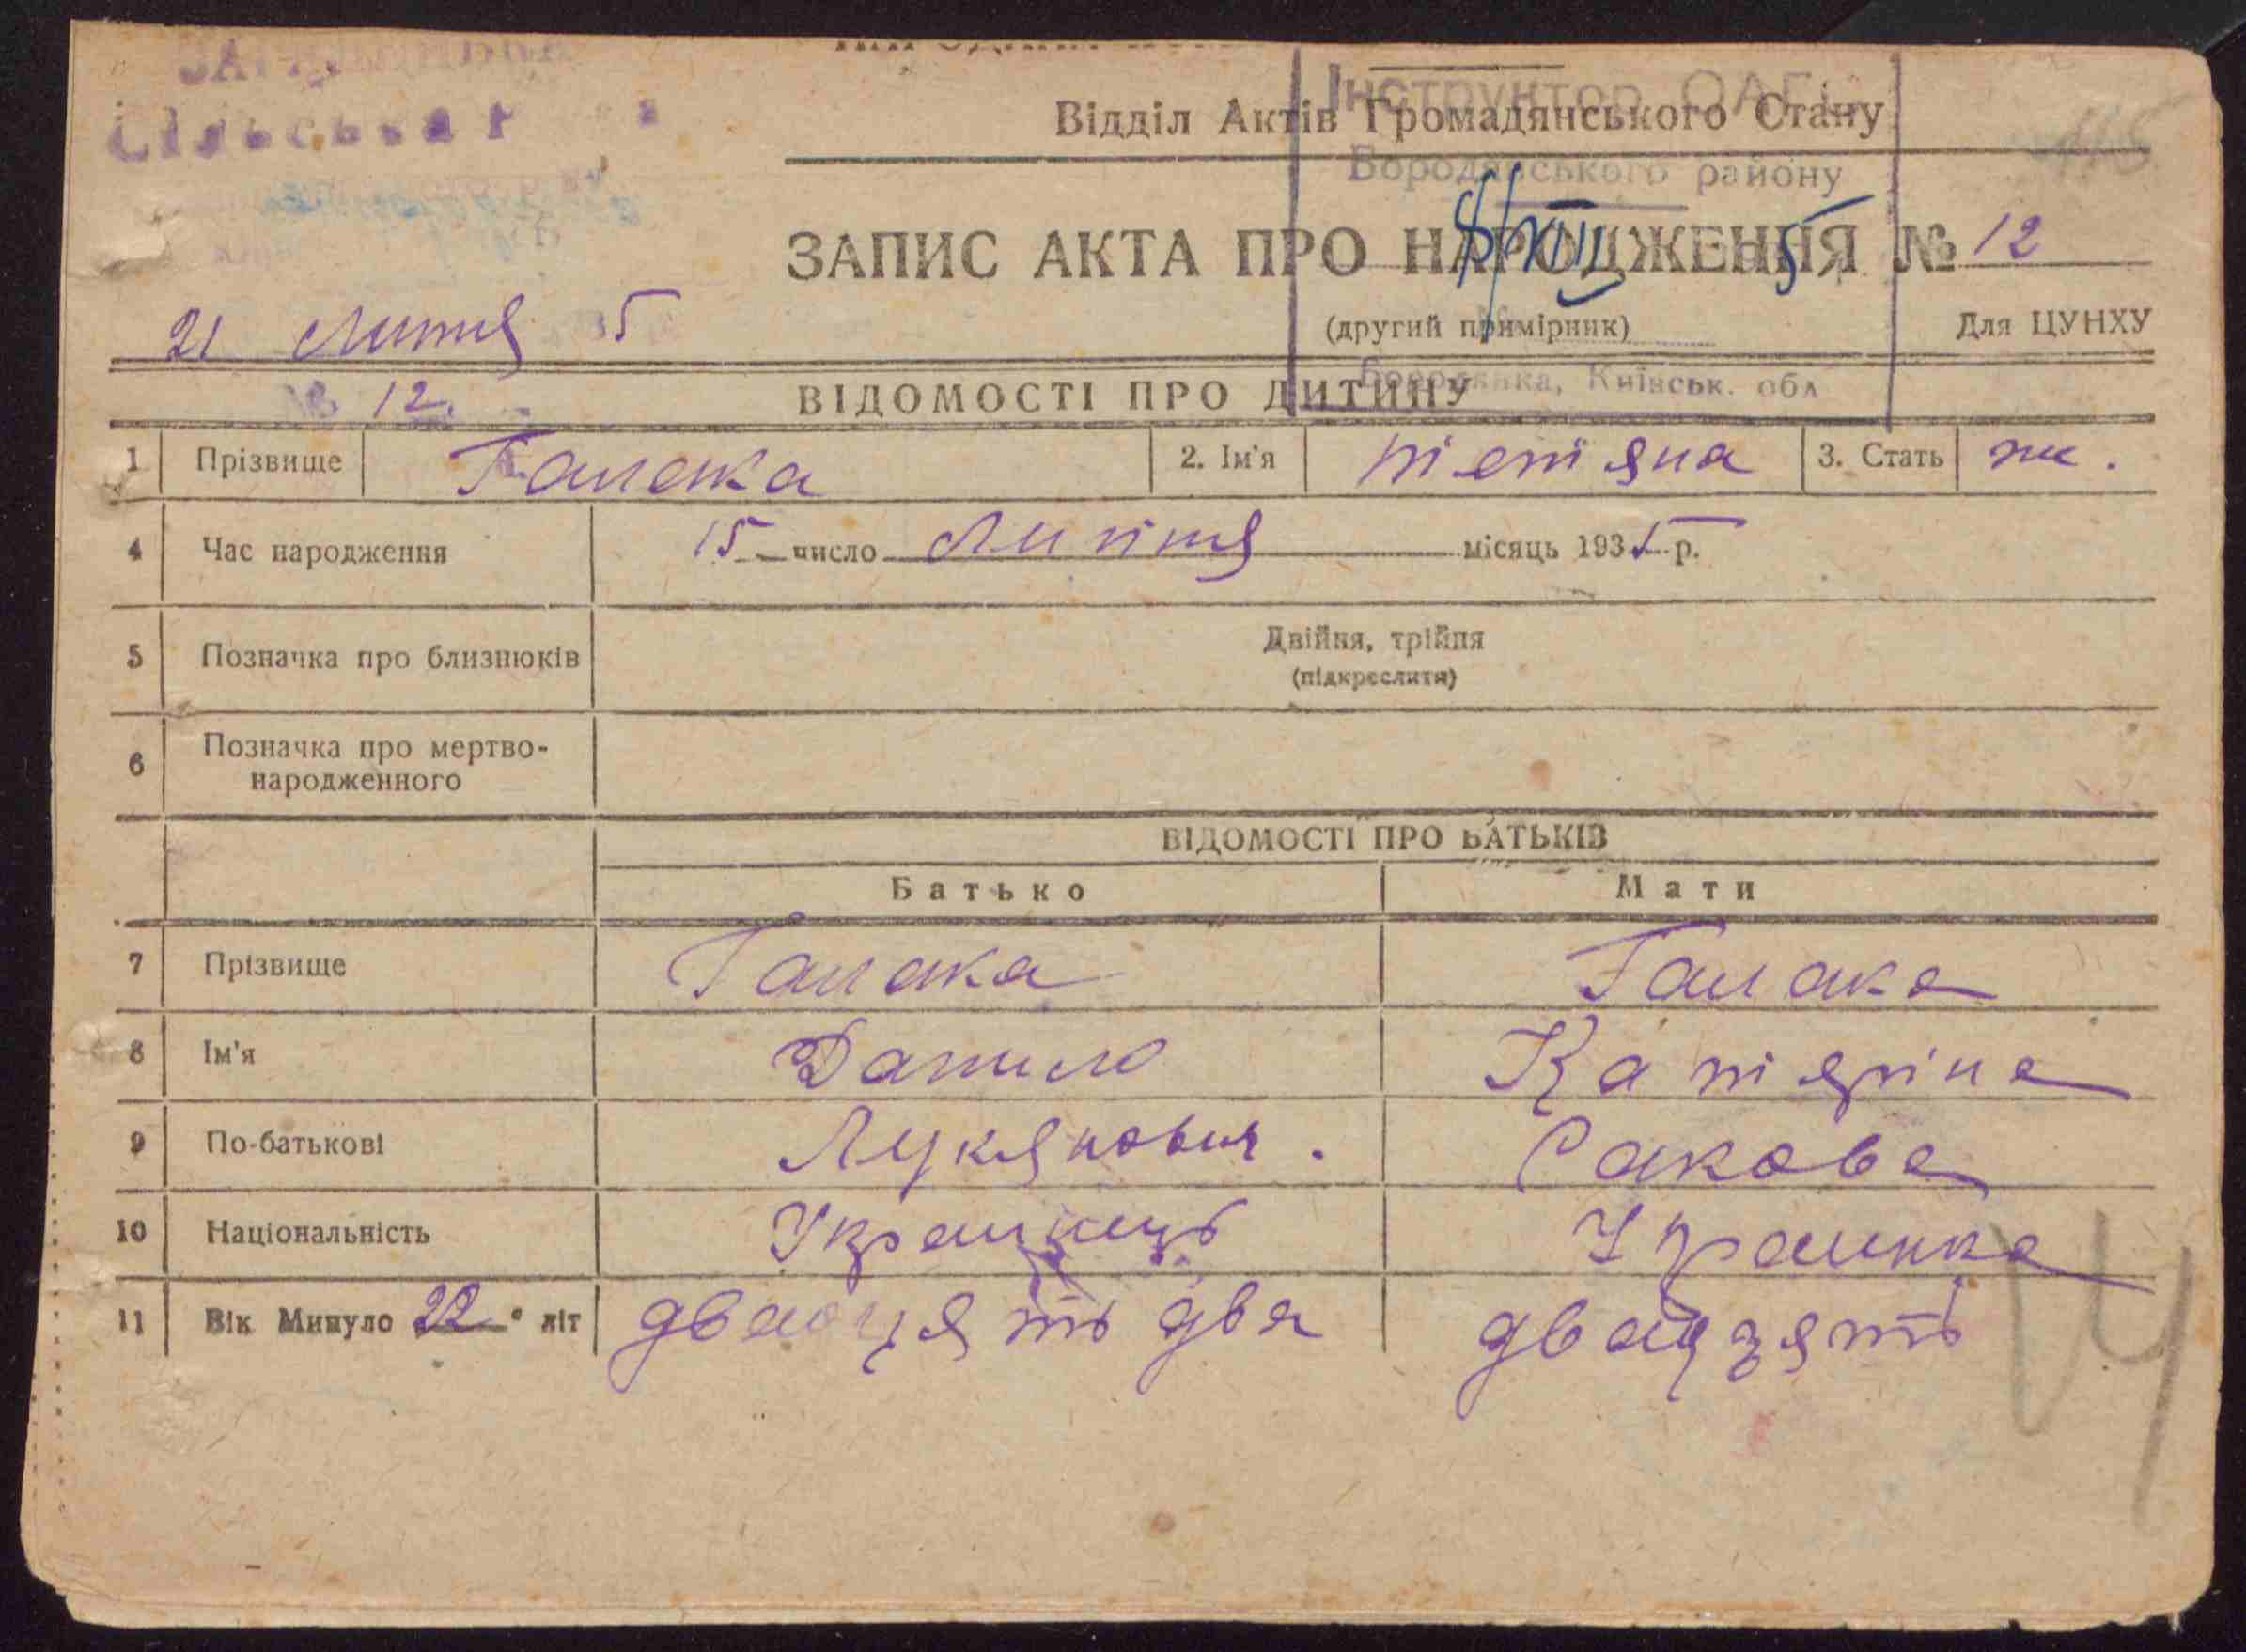 Інструктор ОАГС
Відділ Актів Громадянського Стану
Бородянського району
ЗАПИС АКТА ПРО НАРОДЖЕННЯ № 12
21 Липня 5
(другий примірник)
Для ЦУНХУ
№ 12.
Бородянка, Київськ. обл
ВІДОМОСТІ ПРО ДИТИНУ
1 Прізвище Галака 2. Ім'я Тетяна 3. Стать ж.
4 Час народження 15 число Липня місяць 1935 р.
5 Позначка про близнюків Двійня, трійня
(підкреслити)
6 Позначка про мертво-
народженного
ВІДОМОСТІ ПРО БАТЬКІВ
Батько Мати
7 Прізвище Галака Галака
8 Ім'я Данило Катяріна
9 По-батькові Лукянович. Сакова
10 Національність Украинець Украинка
11 Вік Минуло 22 літ двадцять два двадзять